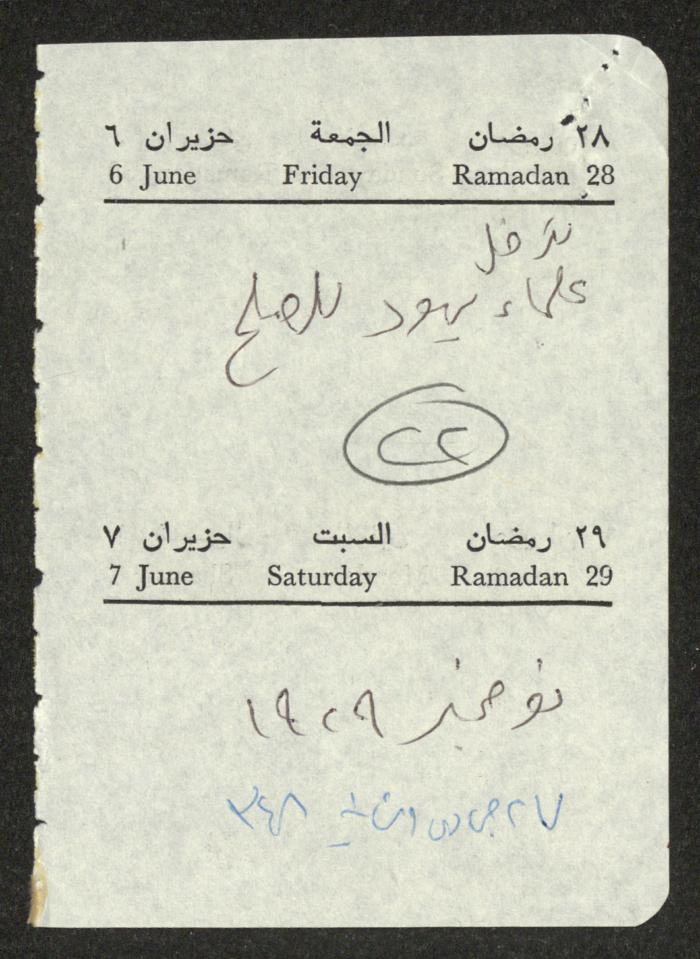 ٢٨ رمضان الجمعة حزيران ٦
6 June Friday Ramadan 28
تدخل
علماء يهود للصلح
٢٢
٢٩ رمضان السبت حزيران ٧
7 June Saturday Ramadan 29
نوفمبر ١٩٢٩
جمادى الثاني